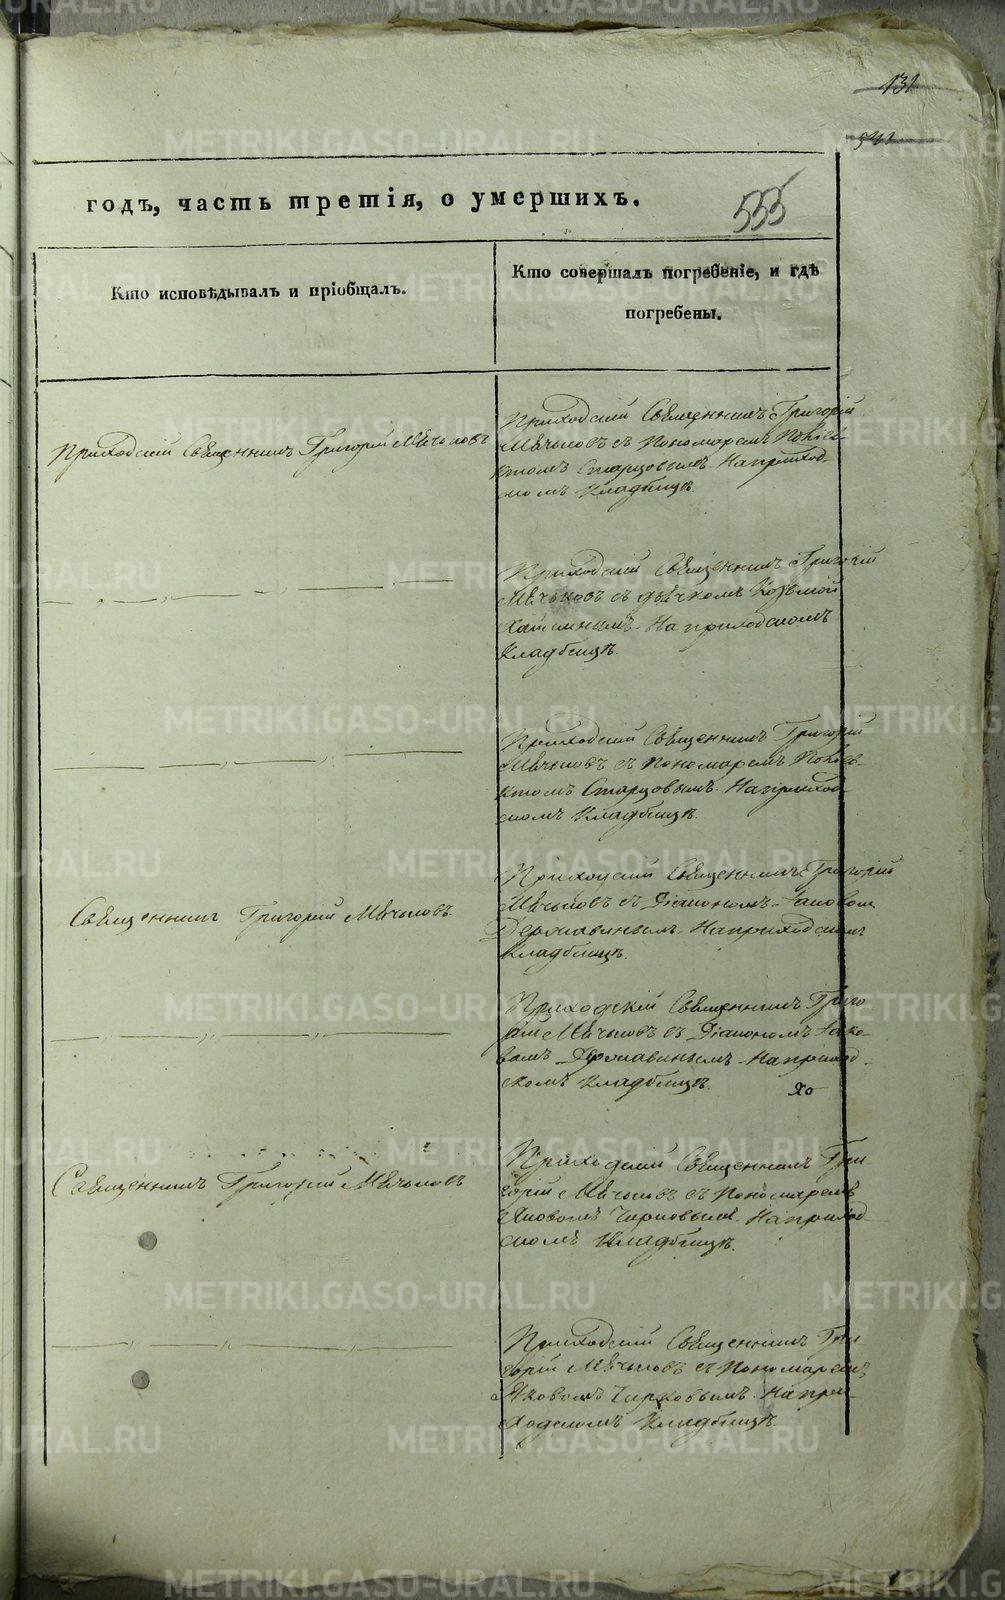 131
531
годъ, часть третія, о умершихъ.
555
Кто исповѣдывалъ и пріобщалъ.
Кто совершалъ погребеніе, и гдѣ
погребены.
Приходскій Священникъ Григорій Мячьковъ
Приходскій Священникъ Григорій
Мячьковъ съ Пономаремъ
Старцовымъ. На приход-
скомъ Кладбищѣ.
Приходскій Священникъ Григорій
Мячьковъ съ дьячкомъ Козьмой
На приходскомъ
Кладбищѣ.
Приходскій Священникъ Григорій
Мячьковъ съ Пономаремъ
Старцовымъ. На приход-
скомъ Кладбищѣ.
Священникъ Григорій Мячьковъ.
Приходскій Священникъ Григорій
Мячьковъ съ Діакономъ Іаковом
Державинымъ. На приходскомъ
Кладбищѣ.
Приходскій Священникъ Григо
рій Мячьковъ съ Діакономъ Іако-
вомъ Державинымъ. На приход-
скомъ Кладбищѣ.
Священникъ Григорій Мячьковъ
Приходскій Священникъ Гри
горій Мячьковъ съ Пономаремъ
Яковомъ Чирковымъ. На приход
скомъ Кладбищѣ.
Приходскій Священникъ Гри
горій Мячьковъ съ Пономаремъ
Яковомъ Чирковымъ. На при-
ходскомъ Кладбищѣ.
METRIKI.GASO-URAL.RU